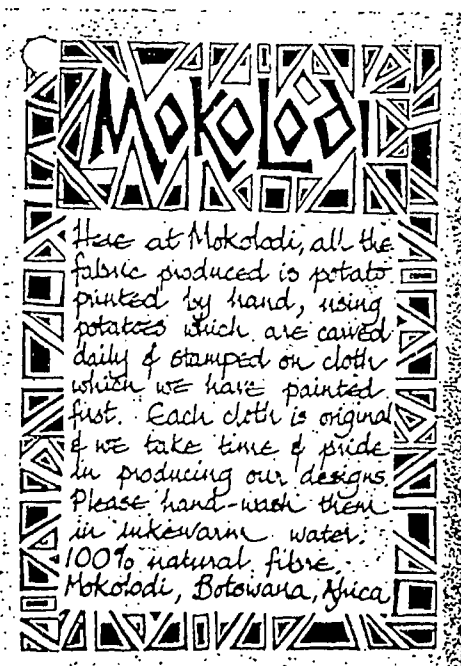 MOKOLODI
Here at Mokolodi, all the
fabric produced is potato
printed by hand, using
potatoes which are carved
daily & stamped on cloth
which we have painted
first. Each cloth is original
& we take time & pride
in producing our designs.
Please hand-wash them
in lukewarm water.
100% natural fibre.
Mokolodi, Botswana, Africa